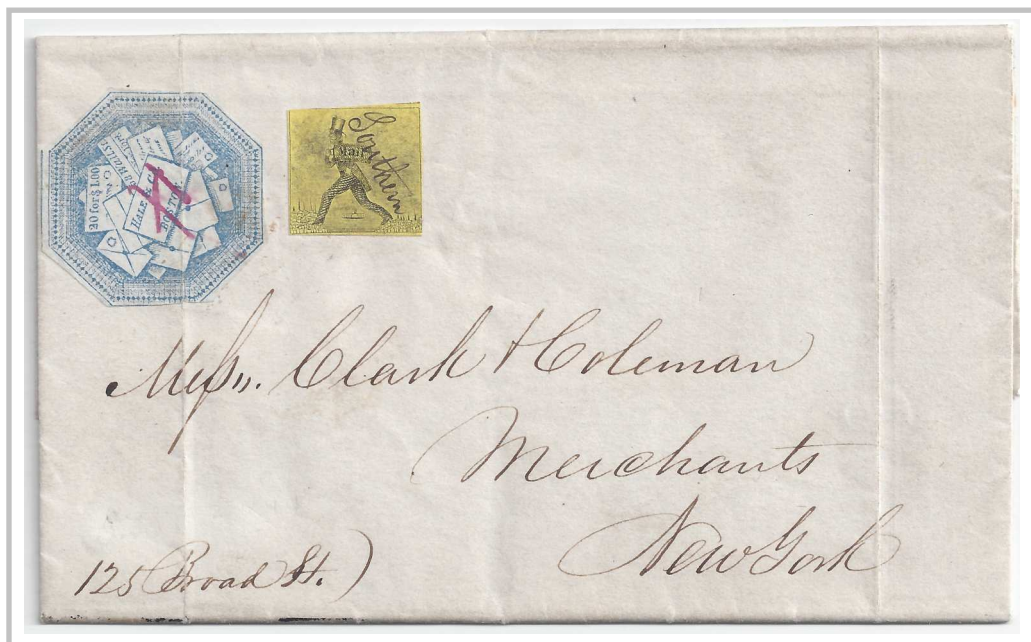 20 for $1.00
HALE & Co.
BOSTON.
Southern
Messrs. Clark & Coleman
Merchants
New York
125 Broad St.)